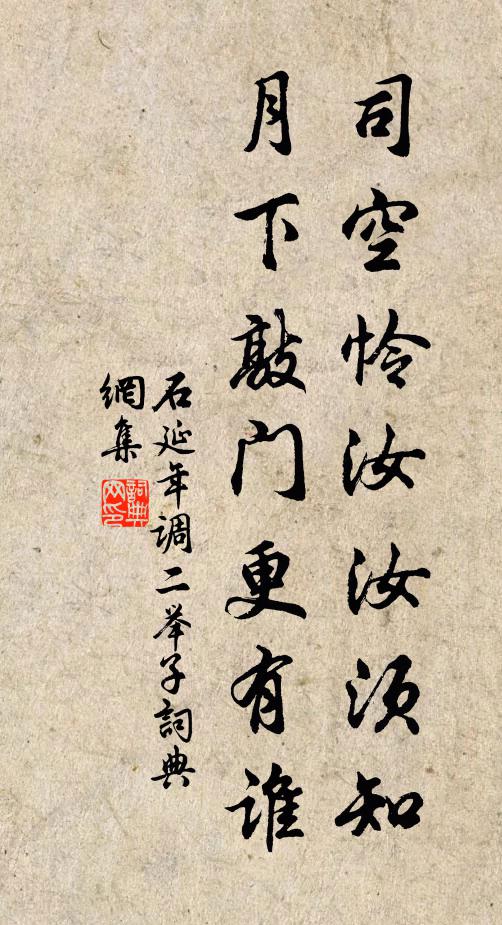 司空怜汝汝须知
月下敲门更有谁
石延年调二举子詞典
網集
詞典网印